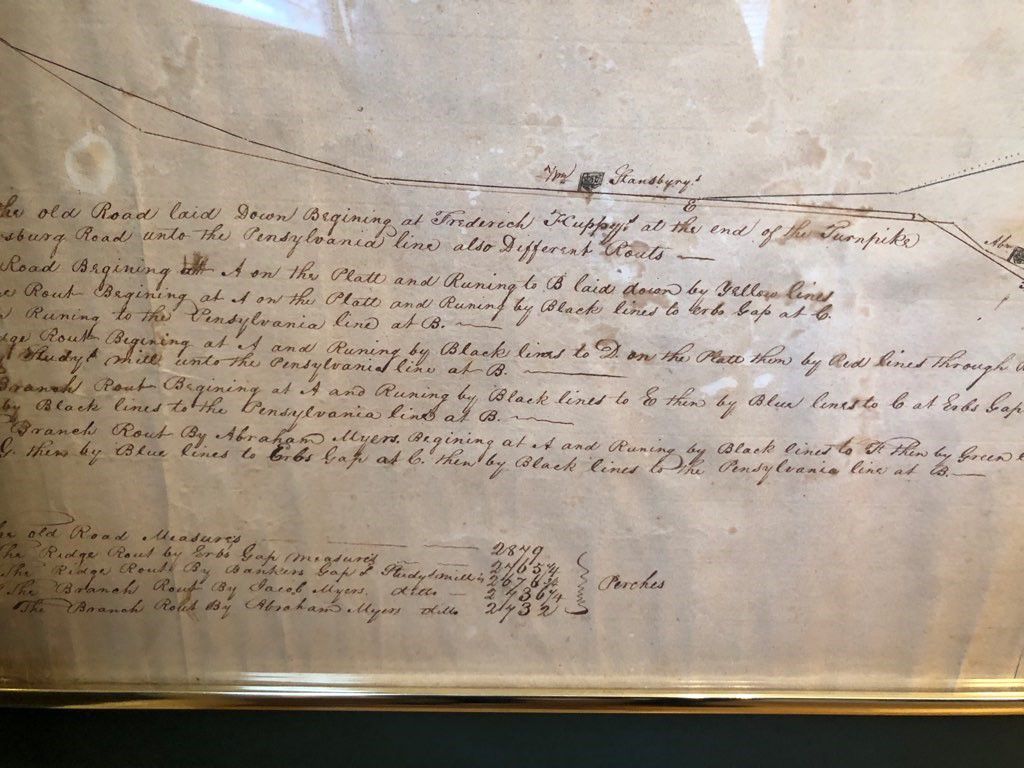 Wm Stansbury's
E
The old Road laid Down Begining at Frederich Huppy's at the end of the Turnpike
sburg Road unto the Pensylvania line also Different Routs
Road Begining at A on the Platt and Runing to B laid down by Yellow lines
Rout Begining at A on the Platt and Runing by Black lines to Erbs Gap at C.
Runing to the Pensylvania line at B.
dge Rout Begining at A and Runing by Black lines to D. on the Platt then by Red lines through
Studys mill unto the Pensylvania line at B.
Branch Rout Begining at A and Runing by Black lines to E then by Blue lines to C at Erbs Gap
by Black lines to the Pensylvania line at B.
Branch Rout By Abraham Myers. Begining at A and Runing by Black lines to F. then by Green
G. then by Blue lines to Erbs Gap at C. then by Black lines to the Pensylvania line at B.
The old Road Measures 2879
The Ridge Rout by Erbs Gap measures
The Ridge Rout By Bankers Gap & Studys mill
The Branch Rout By Jacob Myers. ditto
The Branch Rout By Abraham Myers ditto 2732
Perches